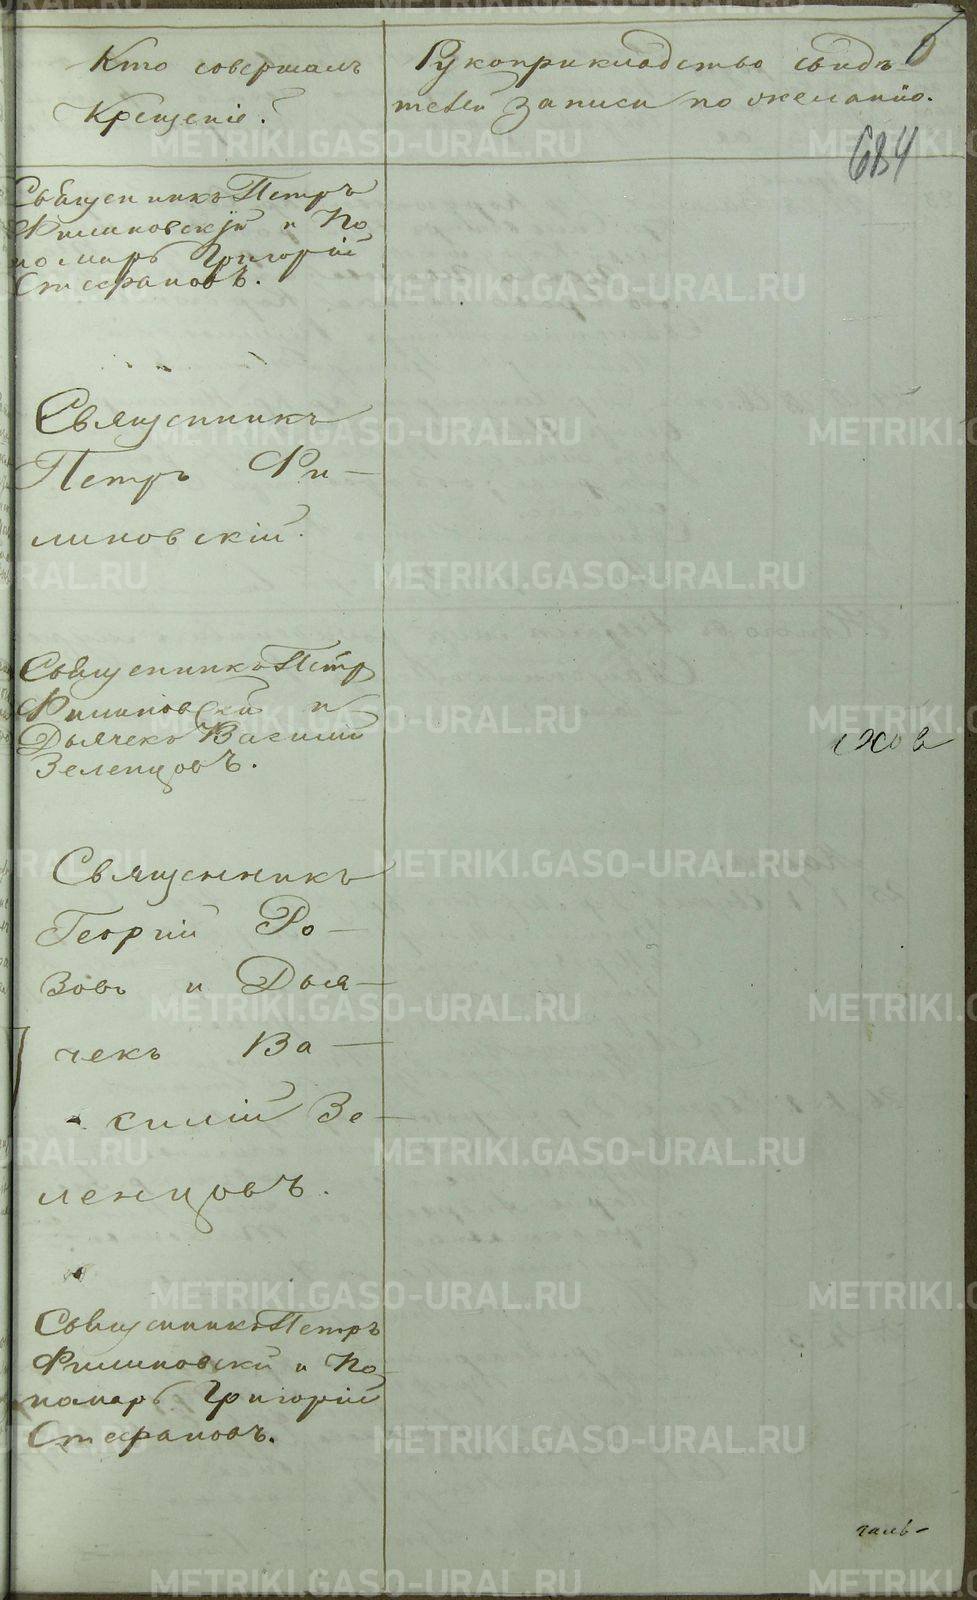 Кто совершалъ
Крещеніе?
Рукоприкладство свидѣ
телей записи по желанію.
684
Священникъ Петръ
Филиповскій и По
номарь Григорій
Стефановъ.
Священникъ
Петръ Фи-
липовскій.
Священникъ Петръ
Филиповскій и
Дьячекъ Василий
Зеленцовъ.
Священникъ
Георгій Ро-
зовъ и Дья-
чекъ Ва-
силій Зе-
ленцовъ.
Священникъ Петръ
Филиповскій и По
номарь Григорій
Стефановъ.
METRIKI.GASO-URAL.RU